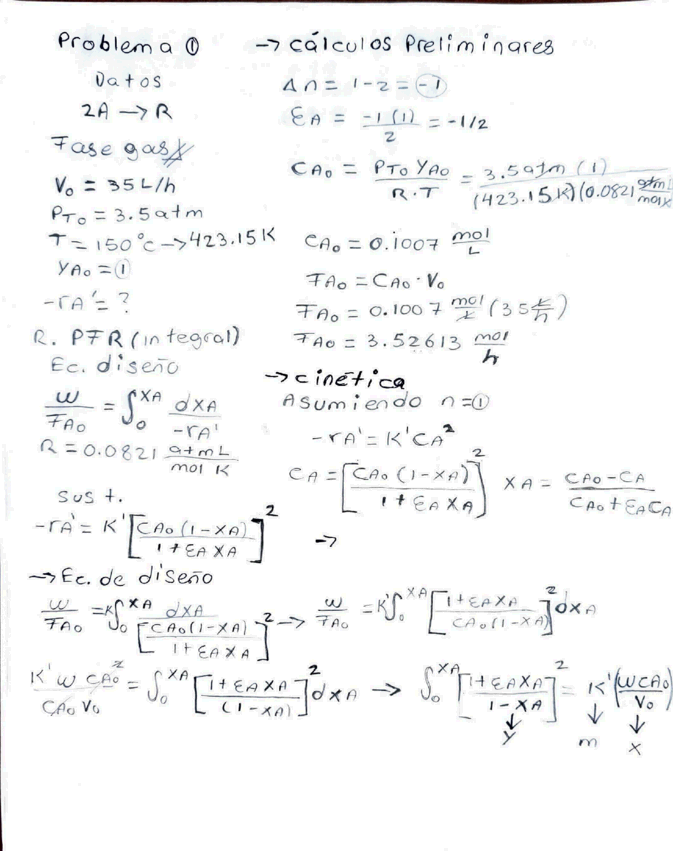 Problema ①
Datos
2A → R
Fase gas
V₀ = 35 L/h
PT₀ = 3.5 atm
T = 150 °C → 423.15 K
YA₀ = ①
-rA' = ?
R. PFR (integral)
Ec. diseño
W/FA₀ = ∫₀^XA dXA/-rA'
R = 0.0821 atm L/mol K
sust.
-rA' = K' [CA₀(1-XA)/1+εAXA]²
→
→ cálculos Preliminares
Δn = 1-2 = -1
εA = -1(1)/2 = -1/2
CA₀ = PT₀ YA₀/R·T = 3.5 atm (1)/(423.15 K)(0.0821 atm L/mol K
CA₀ = 0.1007 mol/L
FA₀ = CA₀ · V₀
FA₀ = 0.1007 mol/L (35 L/h)
FA₀ = 3.52613 mol/h
→ cinética
Asumiendo n = ①
-rA' = K'CA²
CA = [CA₀(1-XA)/1+εAXA]² XA = CA₀-CA/CA₀+εACA
→ Ec. de diseño
W/FA₀ = K∫₀^XA dXA/[CA₀(1-XA)/1+εAXA]² → W/FA₀ = K'∫₀^XA [1+εAXA/CA₀(1-XA)]² dXA
K'W CA₀²/CA₀ V₀ = ∫₀^XA [1+εAXA/(1-XA)]² dXA → ∫₀^XA [1+εAXA/1-XA]² = K'(WCA₀/V₀)
↓ ↓ ↓
Y m X